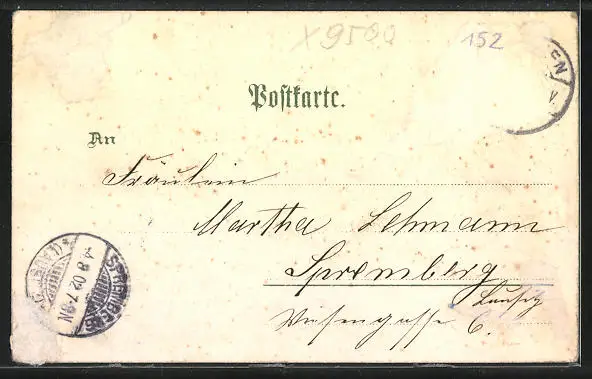 x9500
152
EN
V.
Postkarte.
An
Fräulein
Martha Lehmann
Spremberg
Lausitz
Wiesengasse 6.
SPREMBERG
4.8.02.7-8N
(LAUSITZ)